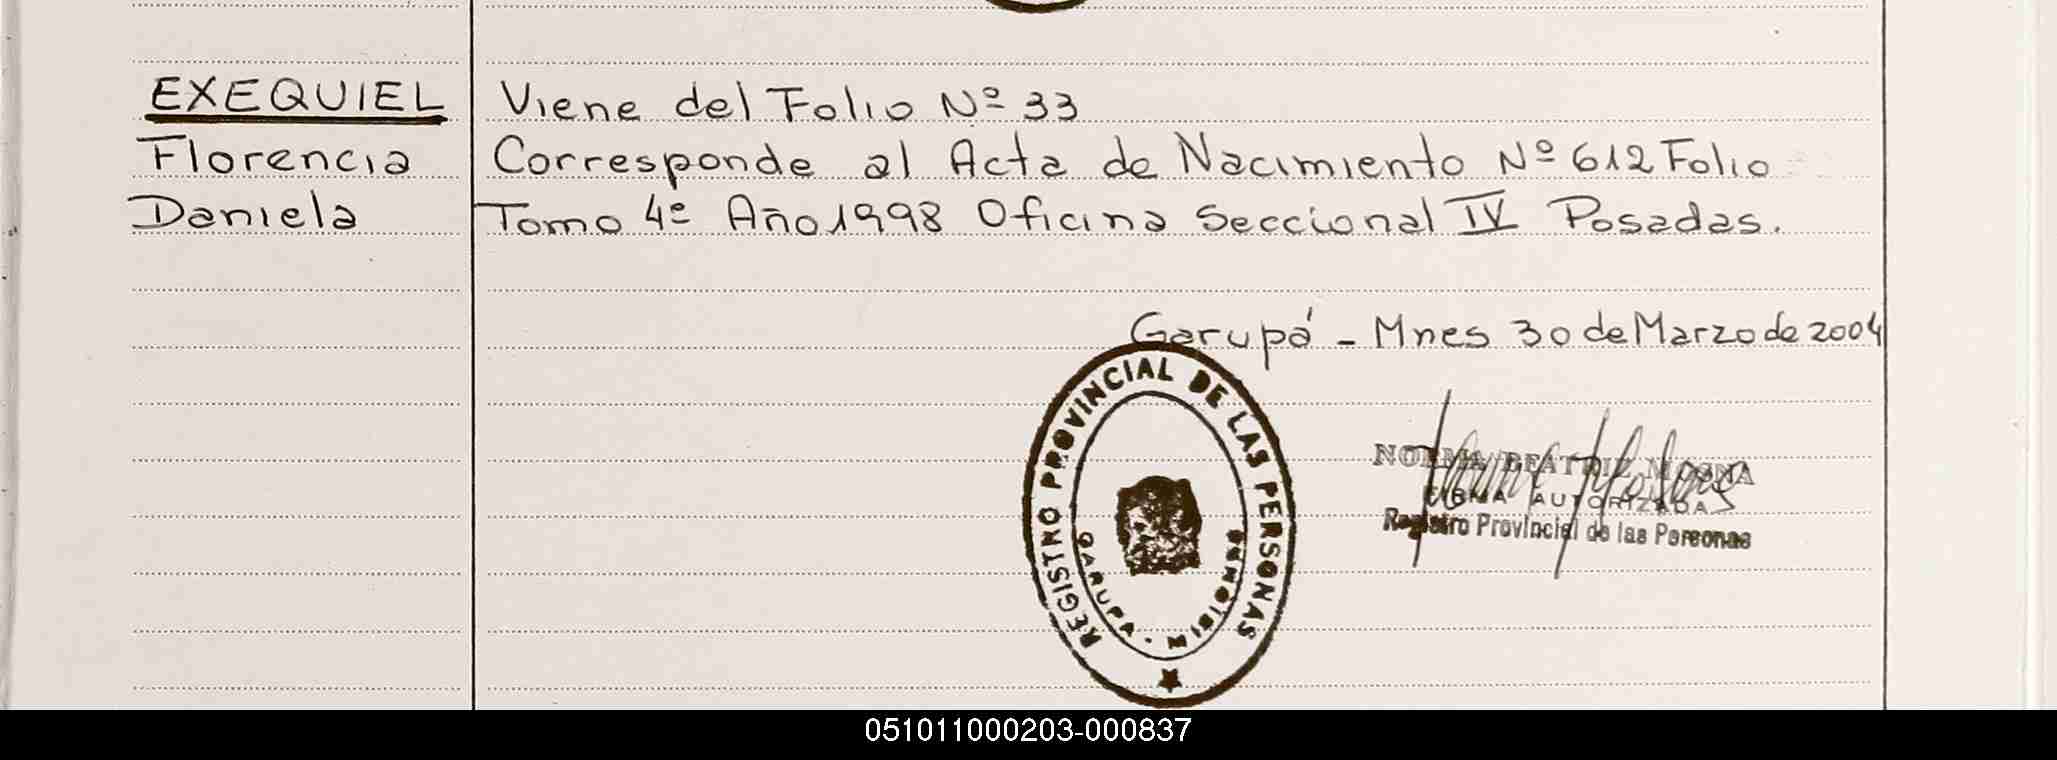 EXEQUIEL
Florencia
Daniela
Viene del Folio Nº 33
Corresponde al Acta de Nacimiento Nº 612 Folio
Tomo 4º Año 1998 Oficina Seccional IV Posadas.
Garupá - Mnes 30 de Marzo de 2004
REGISTRO PROVINCIAL DE LAS PERSONAS
GARUPA - MISIONES
NORMA BEATRIZ MOSNA
FIRMA AUTORIZADA
Registro Provincial de las Personas
051011000203-000837